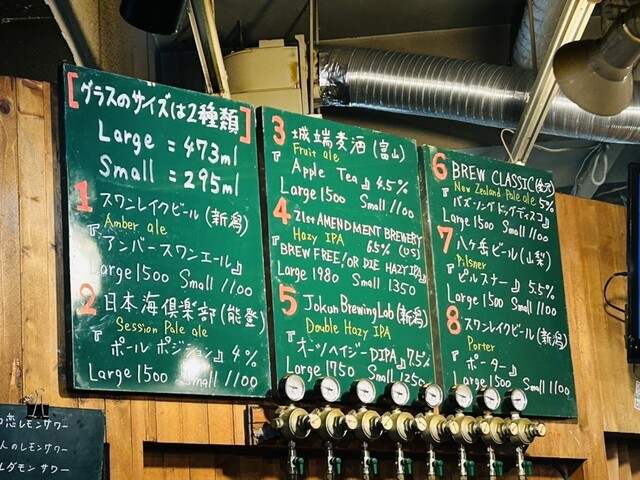 [グラスのサイズは2種類]
Large = 473ml
Small = 295ml
1 スワンレイクビール(新潟)
Amber ale
『アンバースワンエール』
Large 1500 Small 1100
2 日本海倶楽部(能登)
Session Pale ale
『ポールポジション』4%
Large 1500 Small 1100
3 城端麦酒(富山)
Fruit ale
『Apple Tea』4.5%
Large 1500 Small 1100
4 21st AMENDMENT BREWERY
Hazy IPA 6.5% (US)
『BREW FREE! OR DIE HAZY IPA』
Large 1980 Small 1350
5 Jokun Brewing Lab(新潟)
Double Hazy IPA
『オーツヘイジーDIPA』7.5%
Large 1750 Small 1250
6 BREW CLASSIC(金沢)
New Zealand Pale ale 5%
『バズーリングドッグディスコ』
Large 1500 Small 1100
7 八ヶ岳ビール(山梨)
Pilsner
『ピルスナー』5.5%
Large 1500 Small 1100
8 スワンレイクビール(新潟)
Porter
『ポーター』
Large 1500 Small 1100
初恋レモンサワー
人のレモンサワー
ルダモンサワー